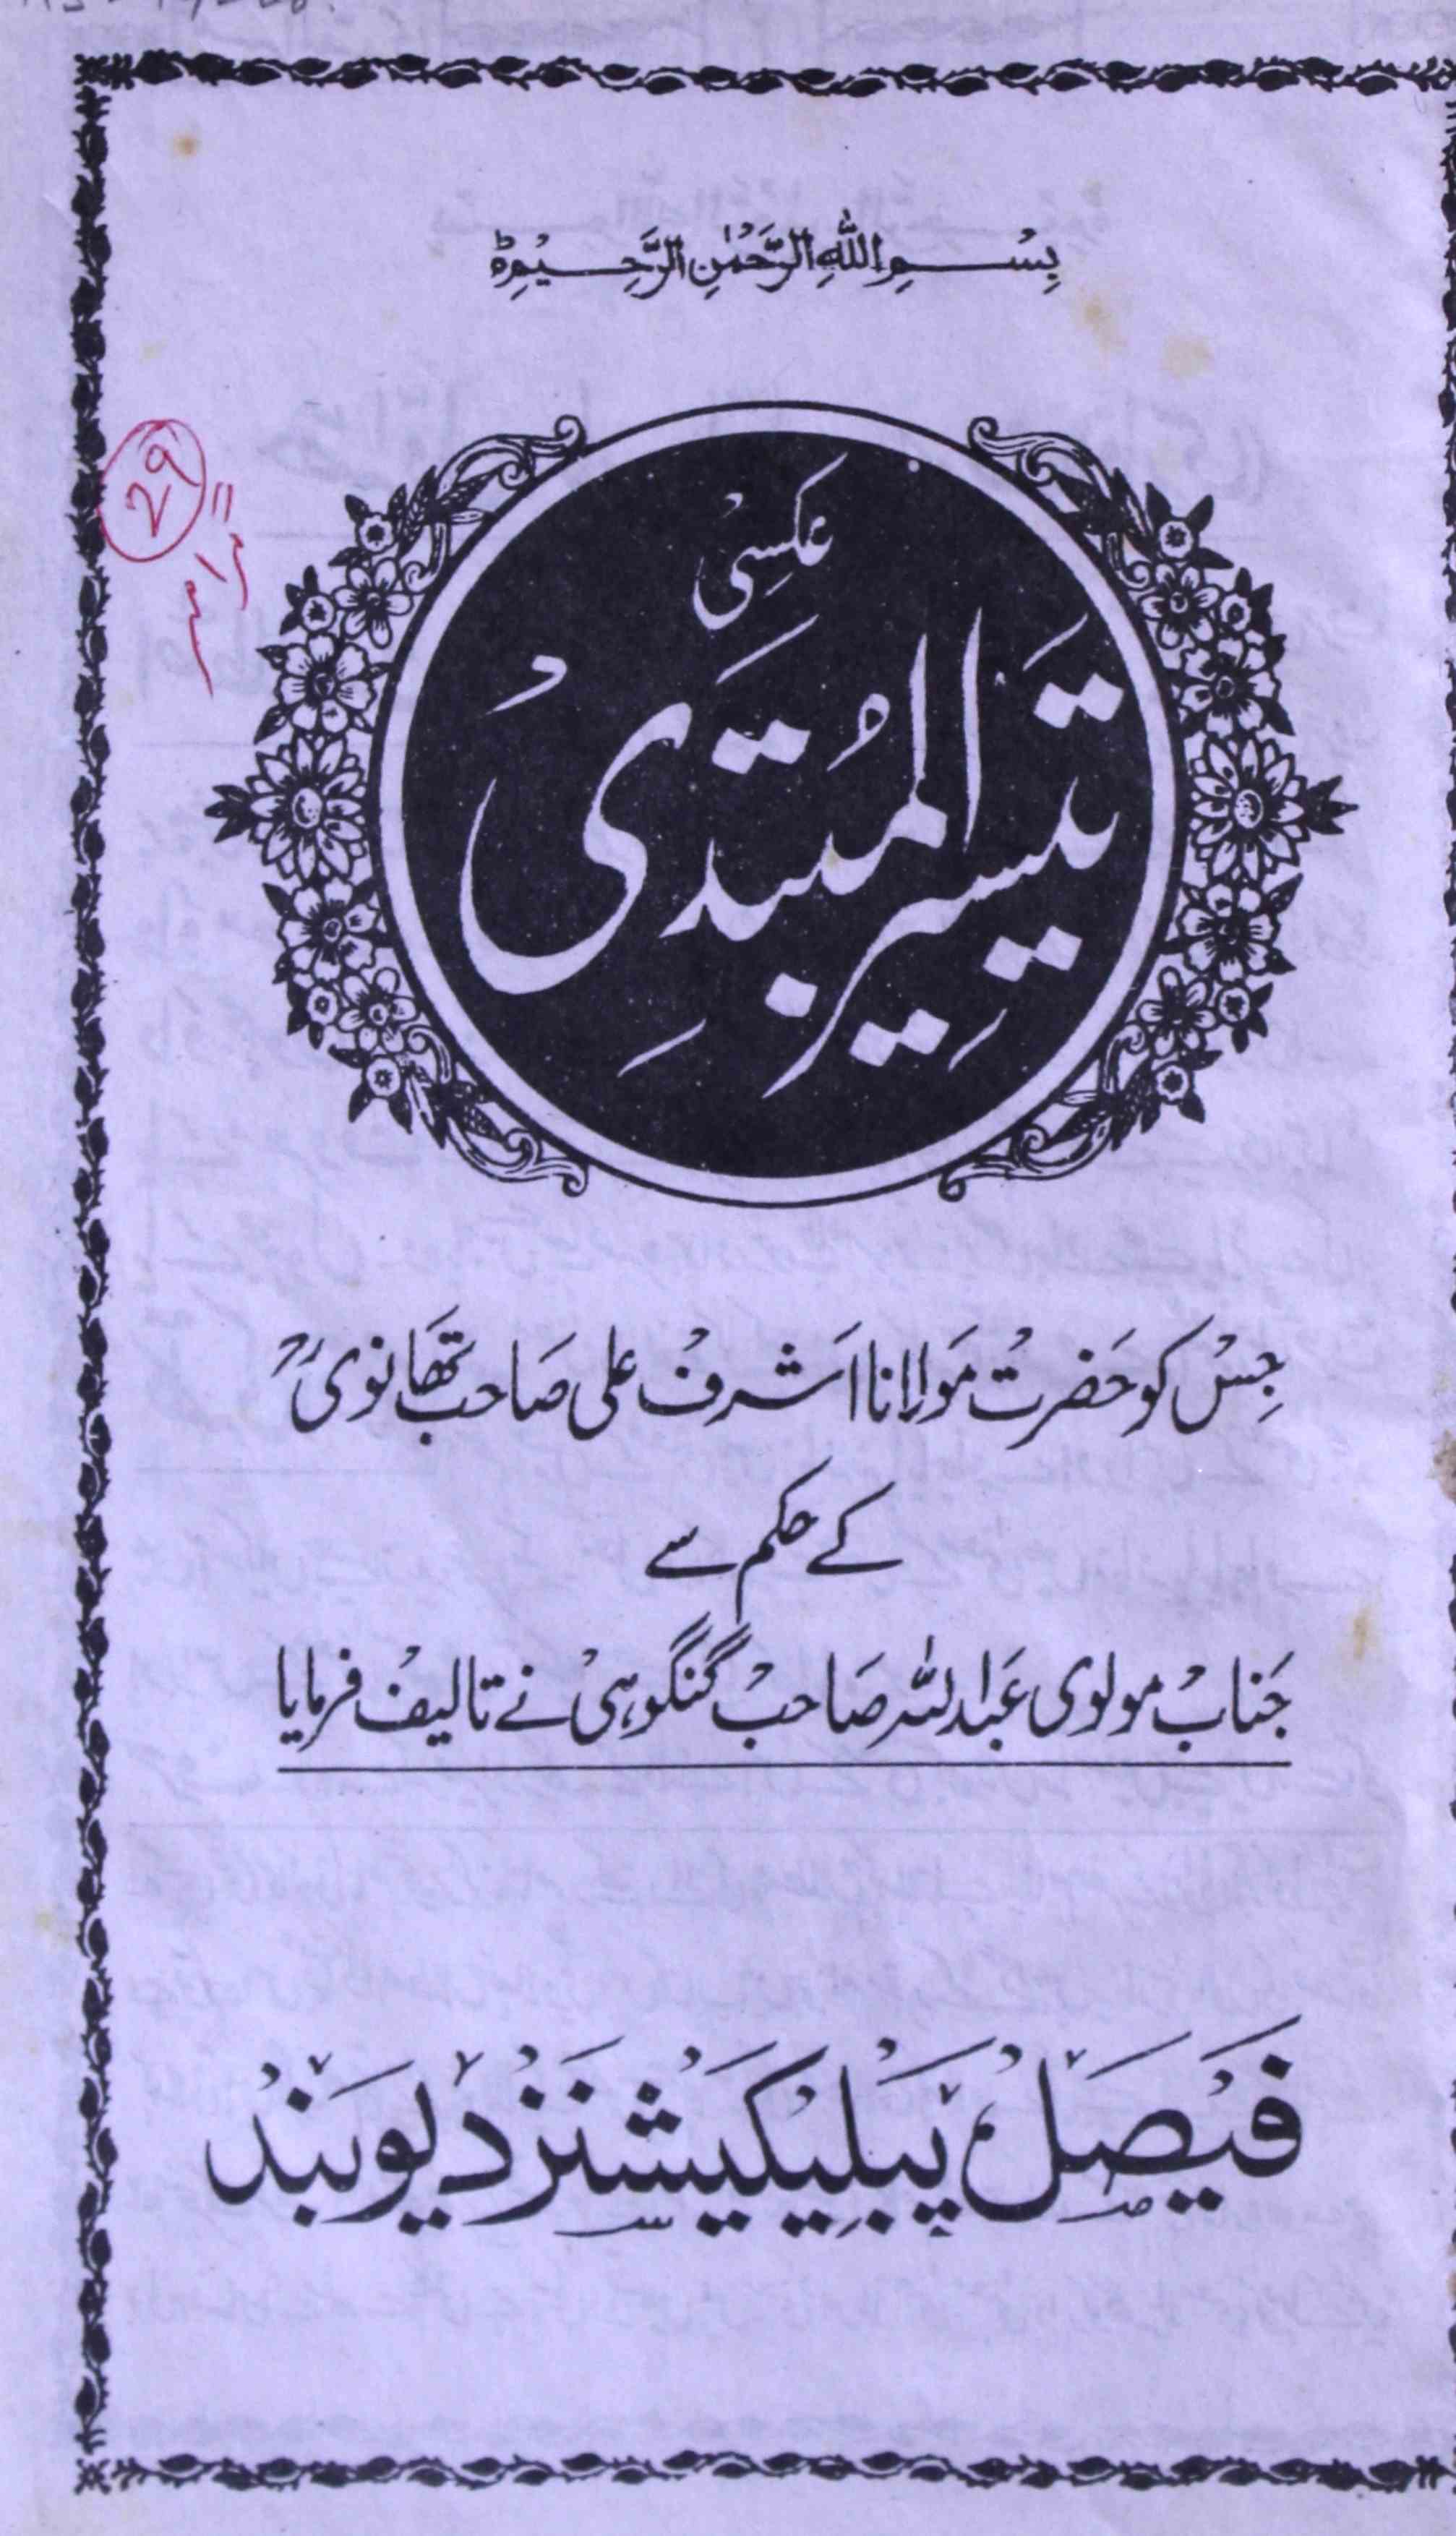 بِسْمِ اللّٰهِ الرَّحْمٰنِ الرَّحِيْمِ
عکسی
تَیسِیرُ المُبتَدِی
جس کو حضرت مولانا اشرف علی صاحب تھانویؒ
کے حکم سے
جناب مولوی عبداللہ صاحب گنگوہی نے تالیف فرمایا
فیصل پبلیکیشنز دیوبند
29